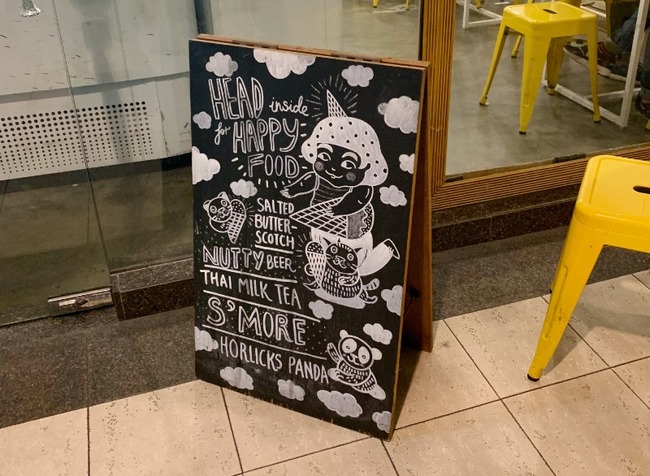 HEAD inside
for HAPPY
FOOD
SALTED
BUTTER-
SCOTCH
NUTTY BEER
THAI MILK TEA
S'MORE
HORLICKS PANDA